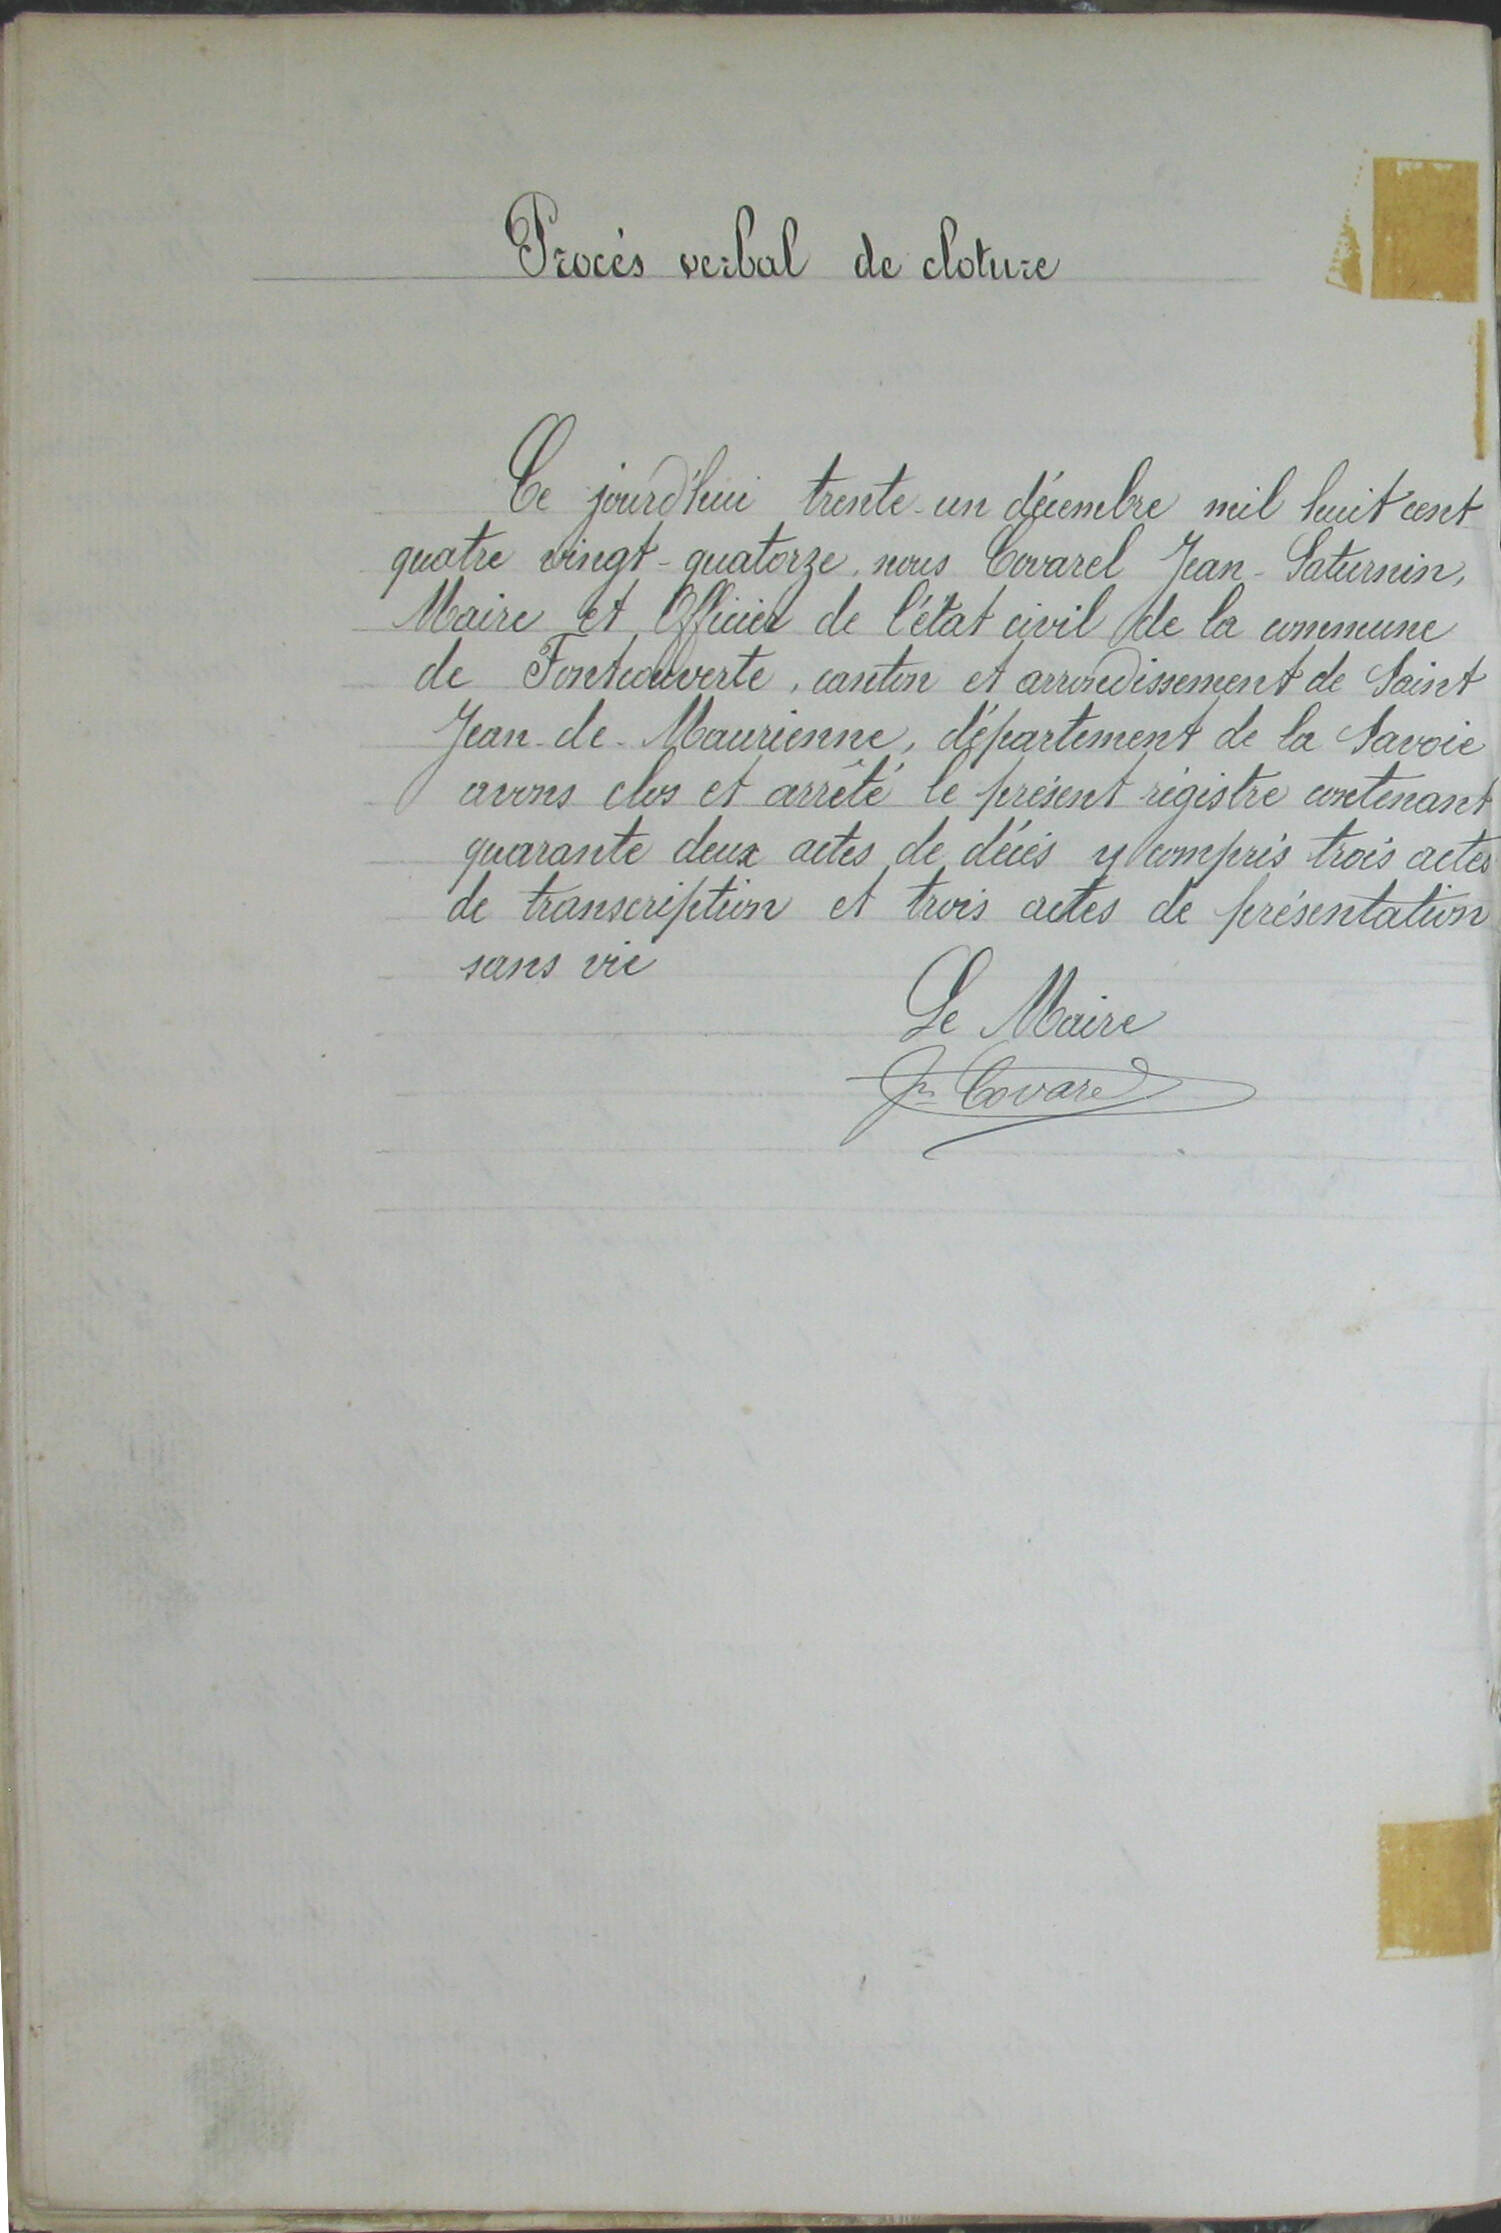 Procès verbal de cloture
Ce jourd'hui trente-un décembre mil huit cent
quatre vingt-quatorze, nous Covarel Jean-Saturnin,
Maire et Officier de l'état civil de la commune
de Fontcouverte, canton et arrondissement de Saint
Jean-de-Maurienne, département de la Savoie
avons clos et arrêté le présent régistre contenant
quarante deux actes de décès y compris trois actes
de transcription et trois actes de présentation
sans vie
Le Maire
Jn Covarel